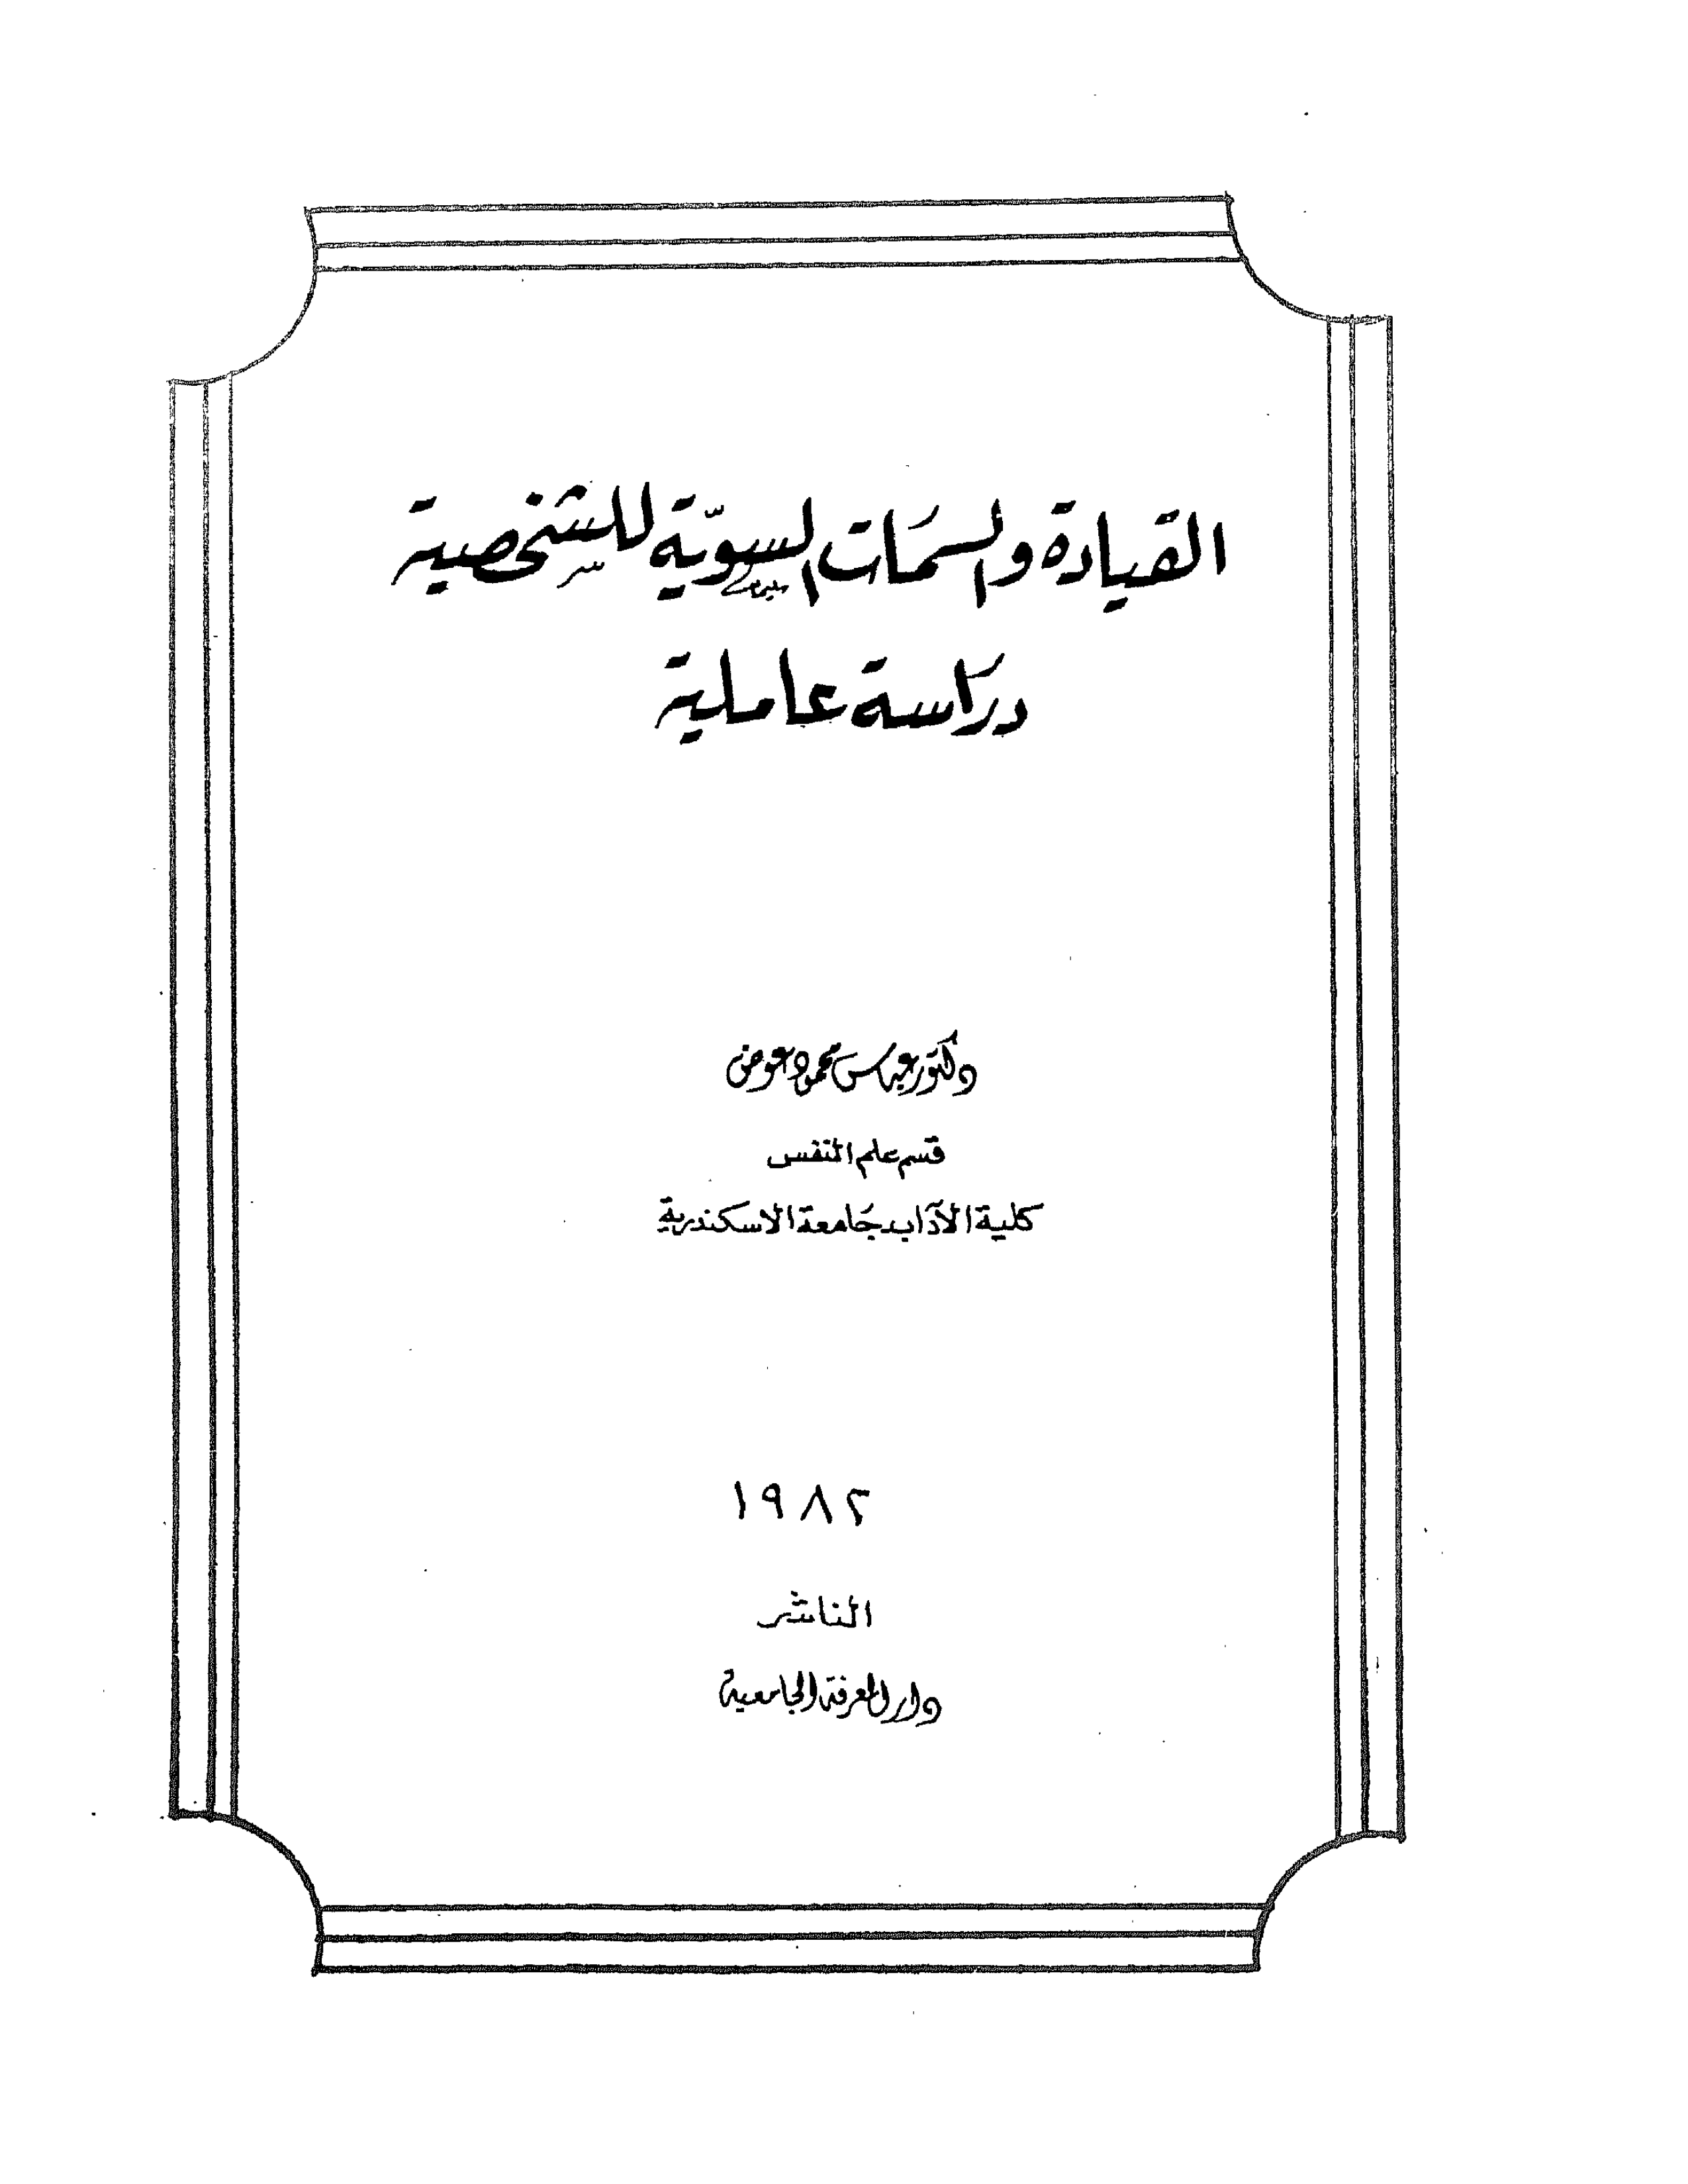 القيادة والسمَات السويّة للشخصية
درَاسة عاملية
دكتور عباس محمود عوض
قسم علم النفس
كلية الآداب جَامعة الاسكندرية
١٩٨٢
الناشر
دار المعرفة الجامعية